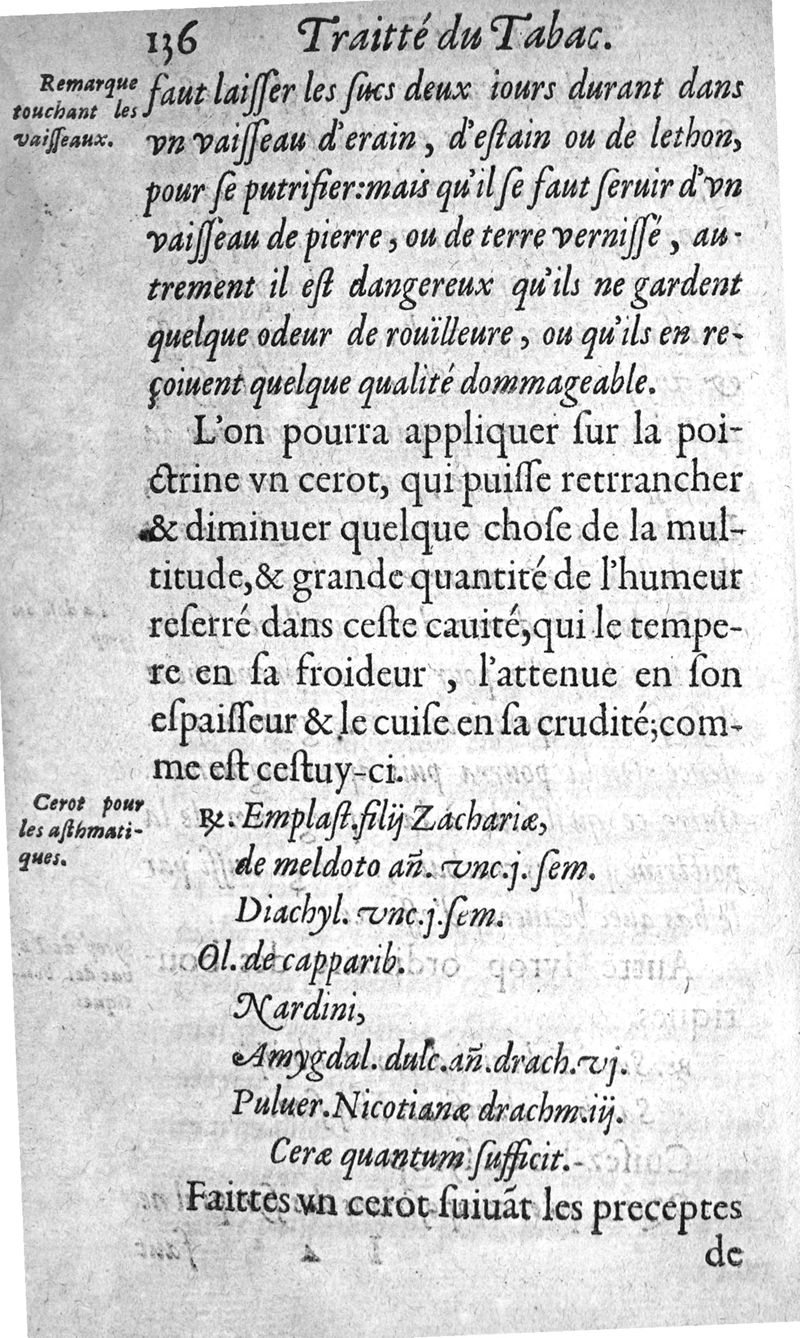 136 Traitté du Tabac.
Remarque
touchant les
vaiſſeaux.
faut laiſſer les ſucs deux iours durant dans
vn vaiſſeau d'erain, d'eſtain ou de lethon,
pour ſe putrifier:mais qu'il ſe faut ſeruir d'vn
vaiſſeau de pierre, ou de terre verniſſé, au-
trement il eſt dangereux qu'ils ne gardent
quelque odeur de rouïlleure, ou qu'ils en re-
çoiuent quelque qualité dommageable.
L'on pourra appliquer ſur la poi-
ctrine vn cerot, qui puiſſe retrrancher
& diminuer quelque choſe de la mul-
titude,& grande quantité de l'humeur
reſerré dans ceſte cauité,qui le tempe-
re en ſa froideur , l'attenue en ſon
eſpaiſſeur & le cuiſe en ſa crudité;com-
me eſt ceſtuy-ci.
Cerot pour
les aſthmati-
ques.
℞. Emplaſt.filij Zachariæ,
de meldoto añ. vnc.j. ſem.
Diachyl. vnc.j.ſem.
Ol. de capparib.
Nardini,
Amygdal. dulc.añ.drach.vj.
Puluer.Nicotianæ drachm.iij.
Ceræ quantum ſufficit.
Faittes vn cerot ſuiuãt les preceptes
de